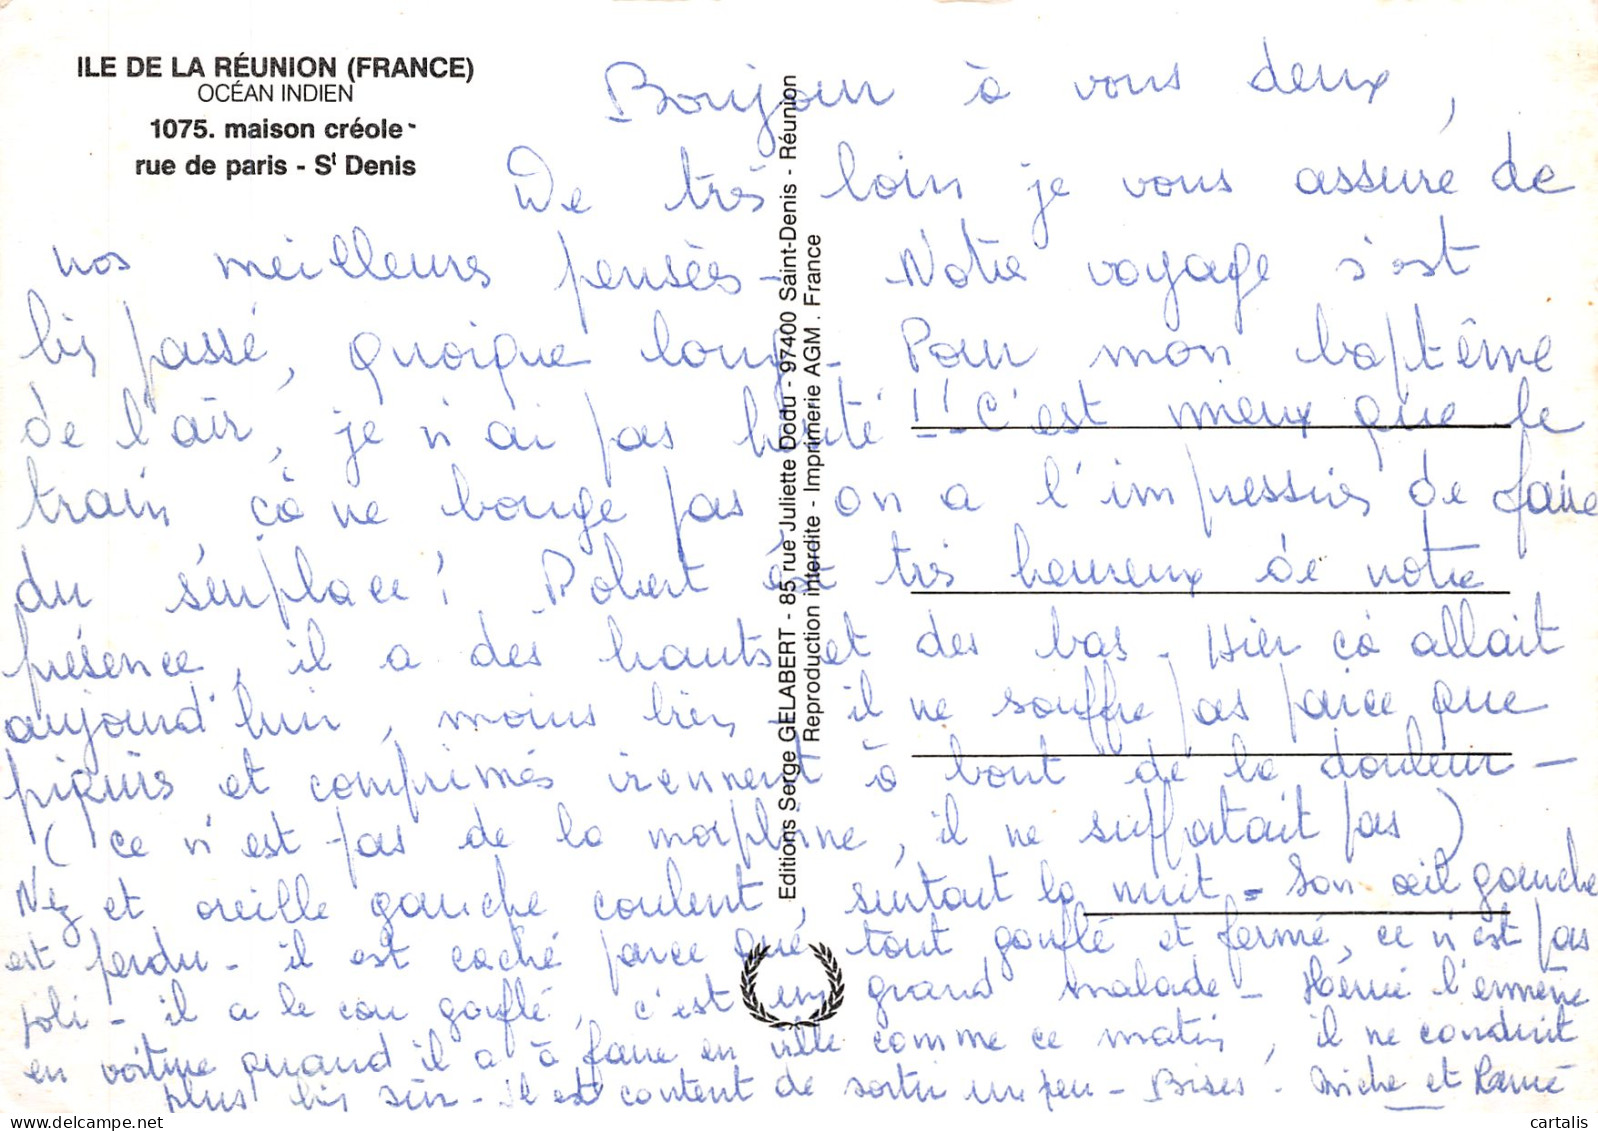 ILE DE LA RÉUNION (FRANCE)
OCÉAN INDIEN
1075. maison créole
rue de paris - St Denis
Editions Serge GELABERT - 85 rue Juliette Dodu - 97400 Saint-Denis - Réunion
Reproduction interdite - Imprimerie AGM . France
Bonjour à vous deux,
De très loin je vous assure de
nos meilleures pensées - Notre voyage s'est
bien passé, quoique long - Pour mon baptême
de l'air, je n'ai pas hésité !! C'est mieux que le
train, çà ne bouge pas on a l'impression de faire
du s'enplace ! Robert est très heureux de notre
présence, il a des hauts et des bas - Hier çà allait
aujourd'hui, moins bien - il ne souffre pas parce que
piqures et comprimés viennent à bout de la douleur -
(ce n'est pas de la morphine, il ne suffoatait pas)
Nez et oreille gauche coulent, surtout la nuit - Son œil gauche
est perdu - il est caché parce que tout gonflé et fermé, ce n'est pas
joli - il a le cou gonflé, c'est un grand malade - Hervé l'emmène
en voiture quand il a à faire en ville comme ce matin, il ne conduit
plus bien sûr - Il est content de sortir un peu - Bises - et
cartalis